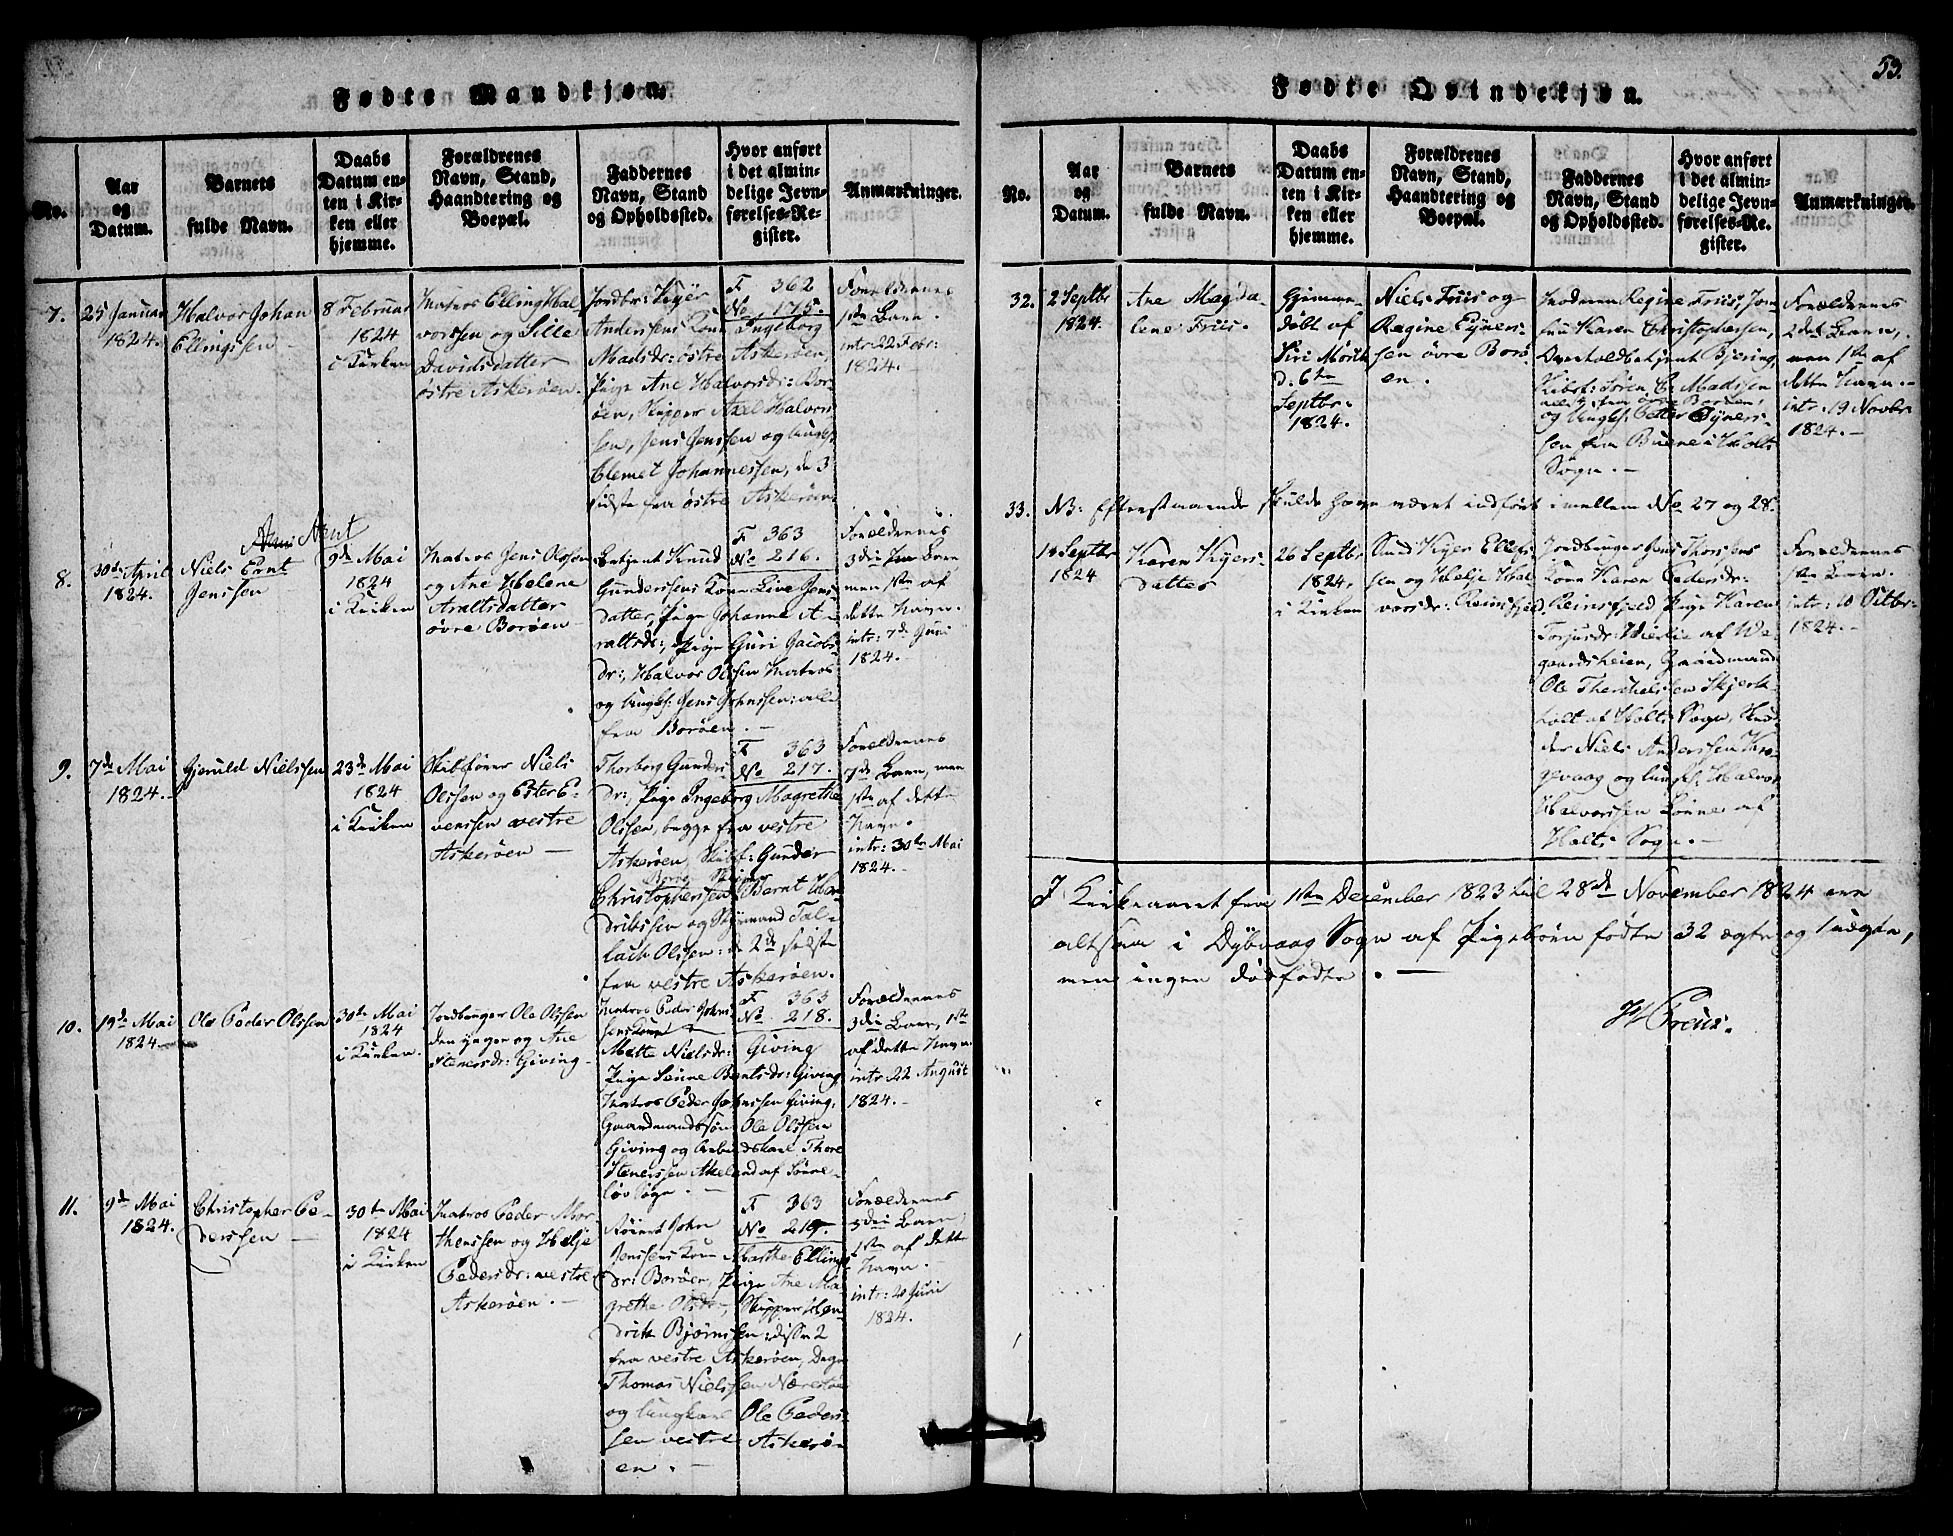 Fødte Mandkjøn.
No.
Aar
og
Datum.
Barnets
fulde Navn.
Daabs
Datum en-
ten i Kir-
ken eller
hjemme.
Forældrenes
Navn, Stand,
Haandtering og
Boepæl.
Faddernes
Navn, Stand
og Opholdssted.
Hvor anført
i det almin-
delige Jevn-
førelses-Re-
gister.
Anmærkninger.
7.
25 Januar
1824.
Halvor Johan
Ellingssen
8 Februar
1824
i Kirken
Matros Elling Hal-
vorssen og Sille
Davidsdatter
østre Askerøen.
Jordbr: Kyer
Anderssens Kone Ingeborg
Madsdr: østre Askerøen,
Pige Ane Halvorsdr: Bor-
øen, Skipper Axel Halvors-
sen, Jens Jenssen og Ungk:
Clemet Johannessen, de 3
sidste fra østre Askerøen
F 362
No 175.
Forældrenes
1ste Barn.
intr: 22 Febr:
1824.
8.
30te April
1824.
Arnt
Niels Ernt
Jenssen
9de Mai
1824
i Kirken
Matros Jens Olssen
og Ane Helene
Araltsdatter
øvre Borøen
Betjent Knud
Gunderssens Kone Live Jens-
datter, Pige Johanne A-
raltsdr:, Pige Guri Jacobs-
dr:, Halvor Olssen Matros
og Ungks: Jens Johnssen: alle
fra Borøen.
F 363
No 216.
Forældrenes
3die Barn
men 1ste af
dette Navn.
intr: 7de Juni
1824.
9.
7de Mai
1824.
Gjeruld Nielssen
23de Mai
1824
i Kirken
Skibsfører Niels
Olssen og Ester E-
venssen vestre
Askerøen
Thorborg Gunders-
dr:, Pige Ingeborg Magrethe
Olssen, begge fra vestre
Askerøen, Skibsf: Gunder
Christophersen Borøe, Skipper Bernt Hen-
drikssen og Styrmand Tal-
lach Olssen: de 2de sidste
fra vestre Askerøen.
F 363
No 217.
Forældrenes
7de Barn, men
1ste af dette
Navn.
intr: 30te Mai
1824.
10.
19de Mai
1824.
Ole Peder Olssen
30te Mai
1824
i Kirken.
Jordbruger Ole Olssen
den yngre og Ane
Stenersdr: Giving
Matros Peder Johns-
sens Kone
Mette Nielsdr: Giving
Pige Sønne Berntsdr: Giving
Matros Peder Johnssen Giving,
Gaardmandssøn Ole Olssen
Giving og Arbeidskarl Thore
Stenerssen Akeland af Sønne-
løv Sogn.
F 363
No 218.
Forældrenes
3die Barn, 1ste
af dette Navn
intr: 22 August
1824.
11.
9de Mai
1824.
Christopher Pe-
derssen
30te Mai
1824
i Kirken
Matros Peder Mor-
thenssen og Helje
Pedersdr: vestre
Askerøen.
John
Jenssens Kone Marthe Ellings-
dr: Borøen, Pige Ane Ma-
grethe Olsdr, Skipper Hen-
drik Bjørnssen: disse 2
fra vestre Askerøen, Dreng
Thomas Nielssen Næresten
og Ungkarl Ole Peders-
sen vestre Askerø-
en.
F 363
No 219.
Forældrenes
3die Barn,
1ste af dette
Navn.
intr: 20 Juni
1824.
53.
Fødte Qvindekjøn.
No.
Aar
og
Datum.
Barnets
fulde Navn.
Daabs
Datum en-
ten i Kir-
ken eller
hjemme.
Forældrenes
Navn, Stand,
Haandtering og
Boepæl.
Faddernes
Navn, Stand
og Opholdssted.
Hvor anført
i det almin-
delige Jevn-
førelses-Re-
gister.
Anmærkninger.
32.
2 Septbr
1824.
Ane Magda-
lene Friis.
Hjemme-
døbt af
Siri Mørch
d. 6te
Septbr.
1824.
Niels Friis og
Regine Eyners-
sen øvre Borø-
en.
Moderen Regine Friis, Jom-
fru Karen Christophersen,
Overtoldbetjent Bjering,
Skibsf: Søren C. Madssen
alle 4 fra øvre Borøen,
og Ungks: Petter Eyners-
sen fra Buene i Holts
Sogn.
Forældrenes
2det Barn,
men 1ste af
dette Navn.
intr: 19 Novbr
1824.
33.
NB: Efterstaaende skulde have været indført imellem No. 27 og 28.
14 Septbr
1824
Karen Kyers-
datter
26 Septbr
1824.
i Kirken
Smed Kyer Ellefs-
sen og Helje Hal-
vorsdr: Reinsfjeld
Jordbruger Jens Thorssens
Kone Karen Pedersdr:
Reinsfjeld, Pige Karen
Torjusdr: Hierlie af We-
gaardsheien, Gaardmand
Ole Therchelssen Skjerk-
holt af Holts Sogn,
Niels Anderssen Kro-
gevaag og Ungks: Halvor
Halvorssen Lønne af
Holts Sogn.
Forældrenes
1ste Barn.
intr: 10 Octbr:
1824.
I Kirkeaaret fra 1ste December 1823 til 28de November 1824 ere
altsaa i Dybvaag Sogn af Pigebørn fødte 32 ægte og 1 uægte,
men ingen dødfødte.
H Preus.